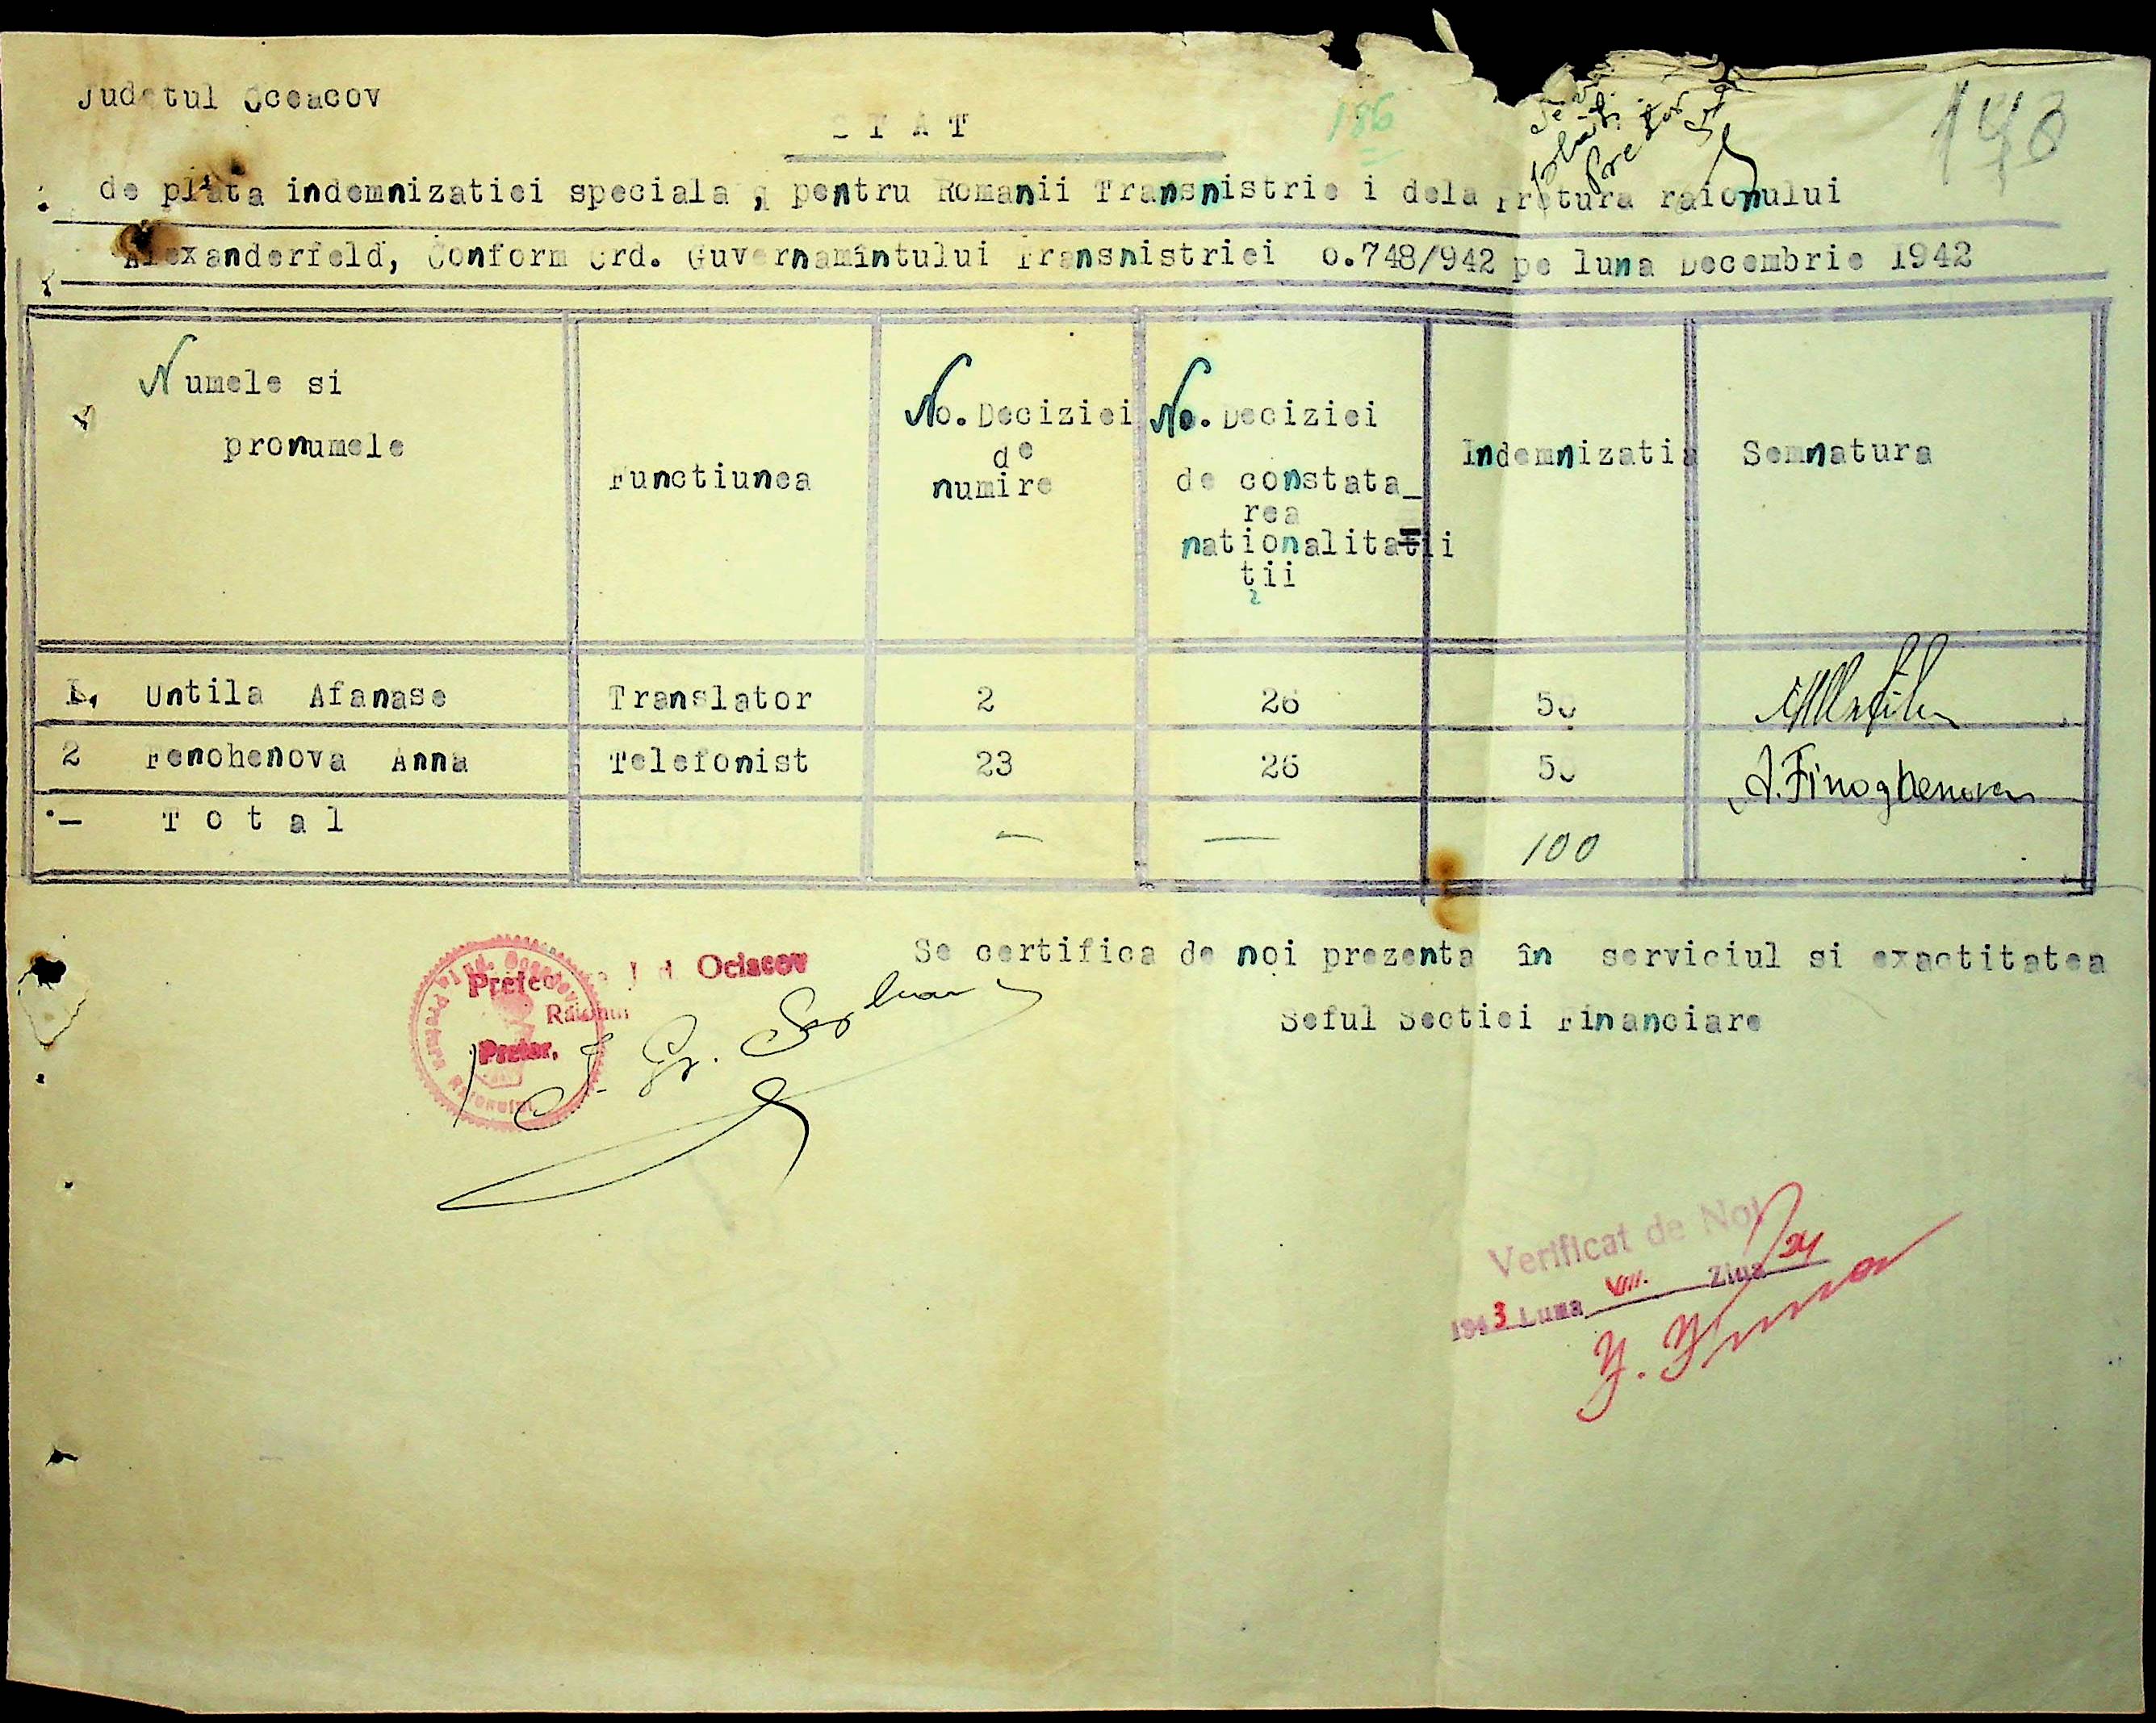 Judetul Oceacov
STAT
186
148
de plata indemnizatiei speciala, pentru Romanii Transnistrie i dela Pretura raionului
Alexanderfeld, Conform Ord. Guvernamîntului Transnistriei o.748/942 pe luna Decembrie 1942
Numele si
pronumele
Functiunea
No. Deciziei
de
numire
No. Deciziei
de constata_
rea
nationalitatii
tii
Indemnizatia
Semnatura
1. Untila Afanase Translator 2 26 50
2 Fenohenova Anna Telefonist 23 26 50 A. Finoghenova
.- Total — — 100
Se certifica de noi prezenta în serviciul si exactitatea
Seful Sectiei Financiare
Ociacov
Raionul
Pretor,
Gr. Serban
Verificat de Noi
1943 Luna VIII. Ziua 24